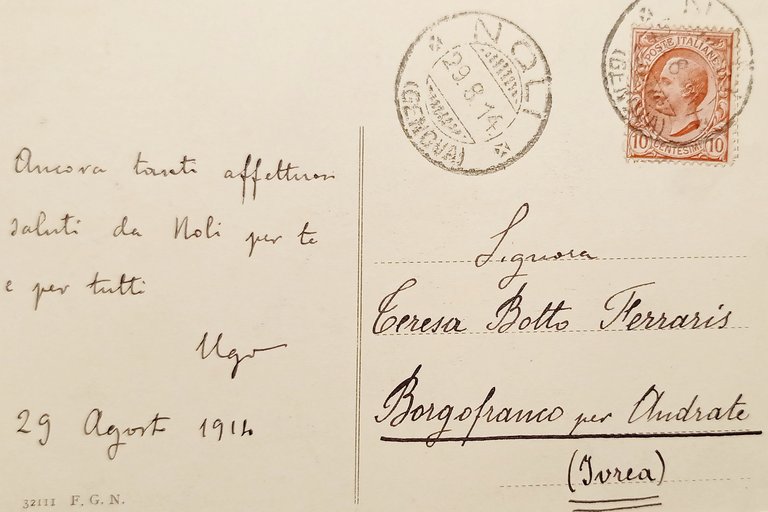 Ancora tanti affettuosi
saluti da Noli per te
e per tutti
Ugo
29 Agosto 1914
32111 F. G. N.
NOLI
29.8.14
(GENOVA)
POSTE ITALIANE
10 CENTESIMI 10
Signora
Teresa Botto Ferraris
Borgofranco per Andrate
(Ivrea)